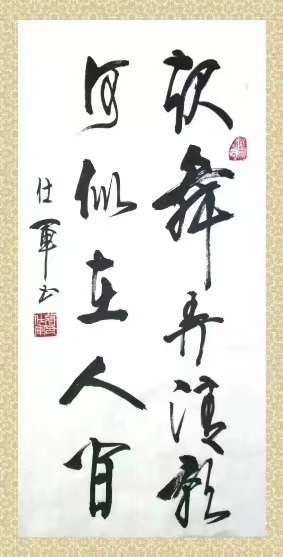 起舞弄清影
何似在人间
仕軍书